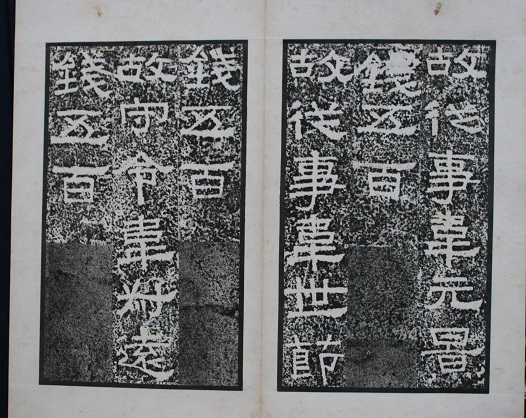 故從事韋元景
錢五百
故從事韋世節
錢五百
故守令韋叔遠
錢五百